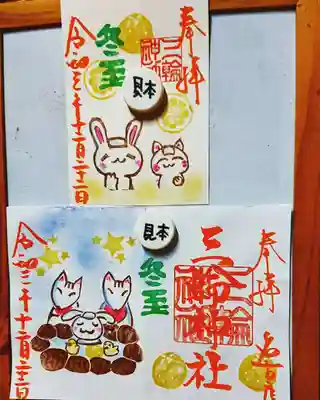 奉拝
三輪神社
冬至
見本
令和三年十二月二十二日
奉拝
三輪神社
冬至
見本
令和三年十二月二十二日